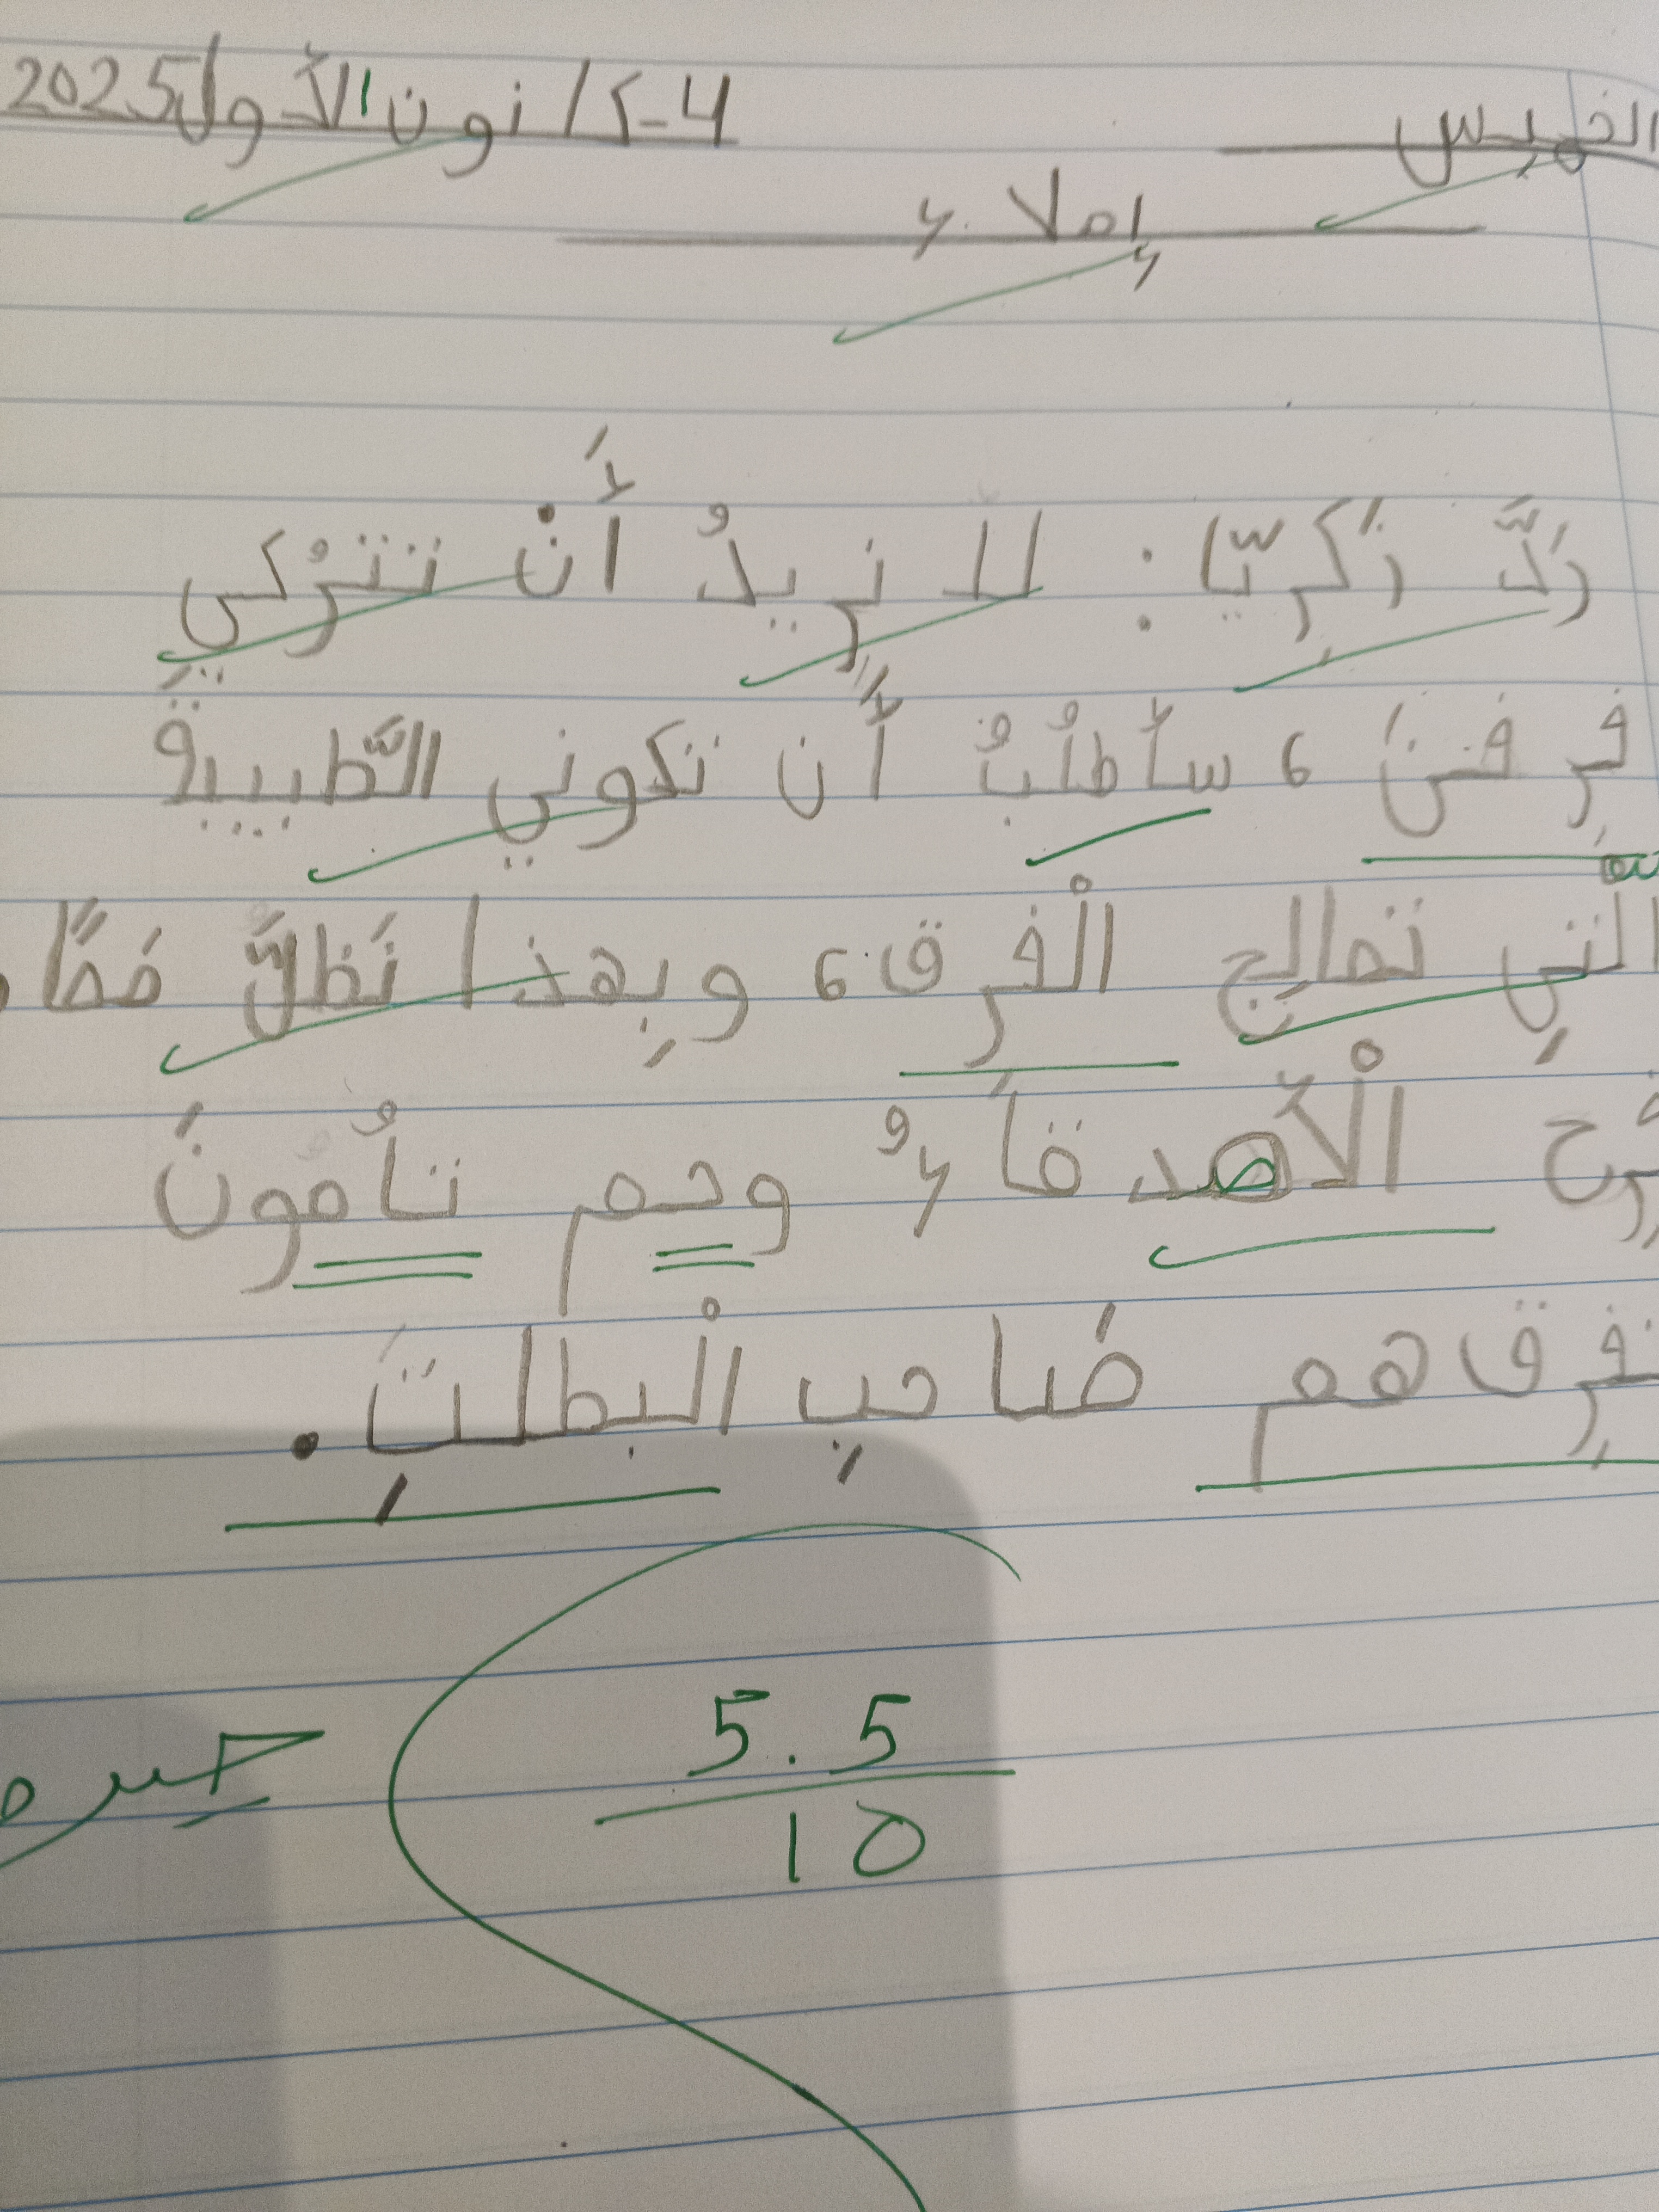 الخميس 4-كانون الأول 2025
إملاء
رَدَّ زَكَرِيّا: لا نُريدُ أَنْ تَتْرُكي
فِرقتنَ، سأَطلُبُ أَن تكوني الطَّبيبةَ
التي تعالِج الْفرِق، وبِهذا نَظَلَّ مَعًا،
فرح الْأصدقاءُ وحم تأَمونَ
فرِقهم صَاحبِ الْبطلتِ.
5.5
10